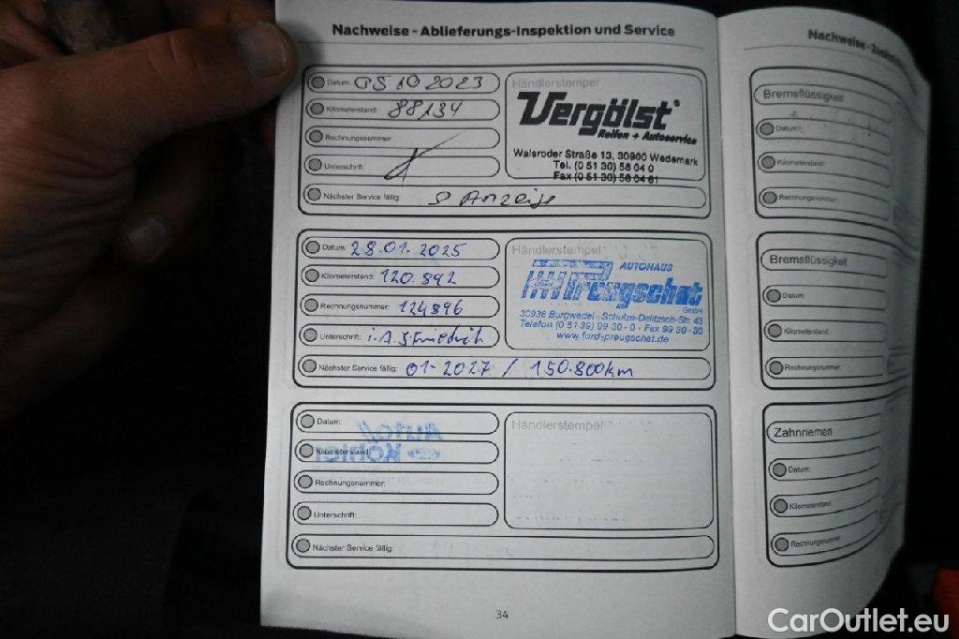 Nachweise - Ablieferungs-Inspektion und Service
Datum: 05 10 2023
Kilometerstand: 88134
Rechnungsnummer:
Unterschrift:
Nächster Service fällig: S Anzeige
Händlerstempel
Vergölst
Reifen + Autoservice
Walsroder Straße 13, 30900 Wedemark
Tel. (0 51 30) 58 04 0
Fax (0 51 30) 58 04 61
Datum: 28.01.2025
Kilometerstand: 120.892
Rechnungsnummer: 124896
Unterschrift: i.A.
Nächster Service fällig: 01-2027 / 150.800km
Händlerstempel
AUTOHAUS
Preugschat
GmbH
30938 Burgwedel - Schulze-Delitzsch-Str. 43
Telefon (0 51 39) 99 30 - 0 - Fax 99 30 - 30
www.ford-preugschat.de
Datum:
Kilometerstand:
Rechnungsnummer:
Unterschrift:
Nächster Service fällig:
Händlerstempel
34
Nachweise -
Bremsflüssigkeit
Datum:
Kilometerstand:
Rechnungsnummer
Bremsflüssigkeit
Datum:
Kilometerstand:
Rechnungsnummer
Zahnriemen
Datum:
Kilometerstand:
Rechnungsnummer
CarOutlet.eu